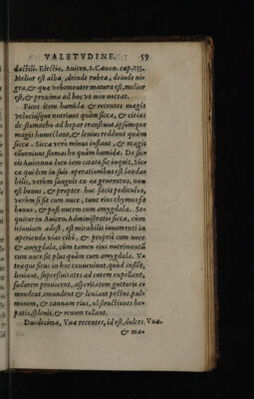 VALETVDINE. 59
dactili. Electio, Auicen. 2. Canon. cap. 233.
Melior est alba, deinde rubea, deinde ni-
gra, & quæ vehementer matura est, melior
est, & proxima ad hoc vt non noceat.
Ficus item humidæ & recentes magis
velociusque nutriunt quàm siccæ, & citius
de stomacho ad hepar transeunt, ipsumque
magis humectant, & lenius reddunt quàm
siccæ. Siccæ verò minus inflant, & magis
conueniunt stomacho quàm humidæ. De sic-
cis Auicenna loco iam citato sic inquit, Sic-
ca quidem in suis operationibus est laudabi-
bilis, verùm sanguis ex ea generatus, non
est bonus, & propter hoc facit pediculos,
verùm si sit cum nuce, tunc eius chymus sit
bonus, & post nucem cum amygdala. Se-
quitur in Auicen. Administratio siccæ, cùm
ieiunium adest, est mirabilis iuuamenti in
aperiendo vias cibi, & propriè cum nuce
& amygdala, cùm tamen eius nutrimentū
cum nuce sit plus quàm cum amygdala. V-
træque ficus in hoc conueniunt, quòd inflēt,
leniant, superfluitates ad cutem expellant,
sudorem prouocent, asperitatem gutturis e-
mendent, emundent & leniant pectus, pul-
monem, & cannam eius, obstructiones he-
patis, splenis, & renum tollant.
Duodecima, Vuæ recentes, id est, dulces. Vuæ.
& ma-